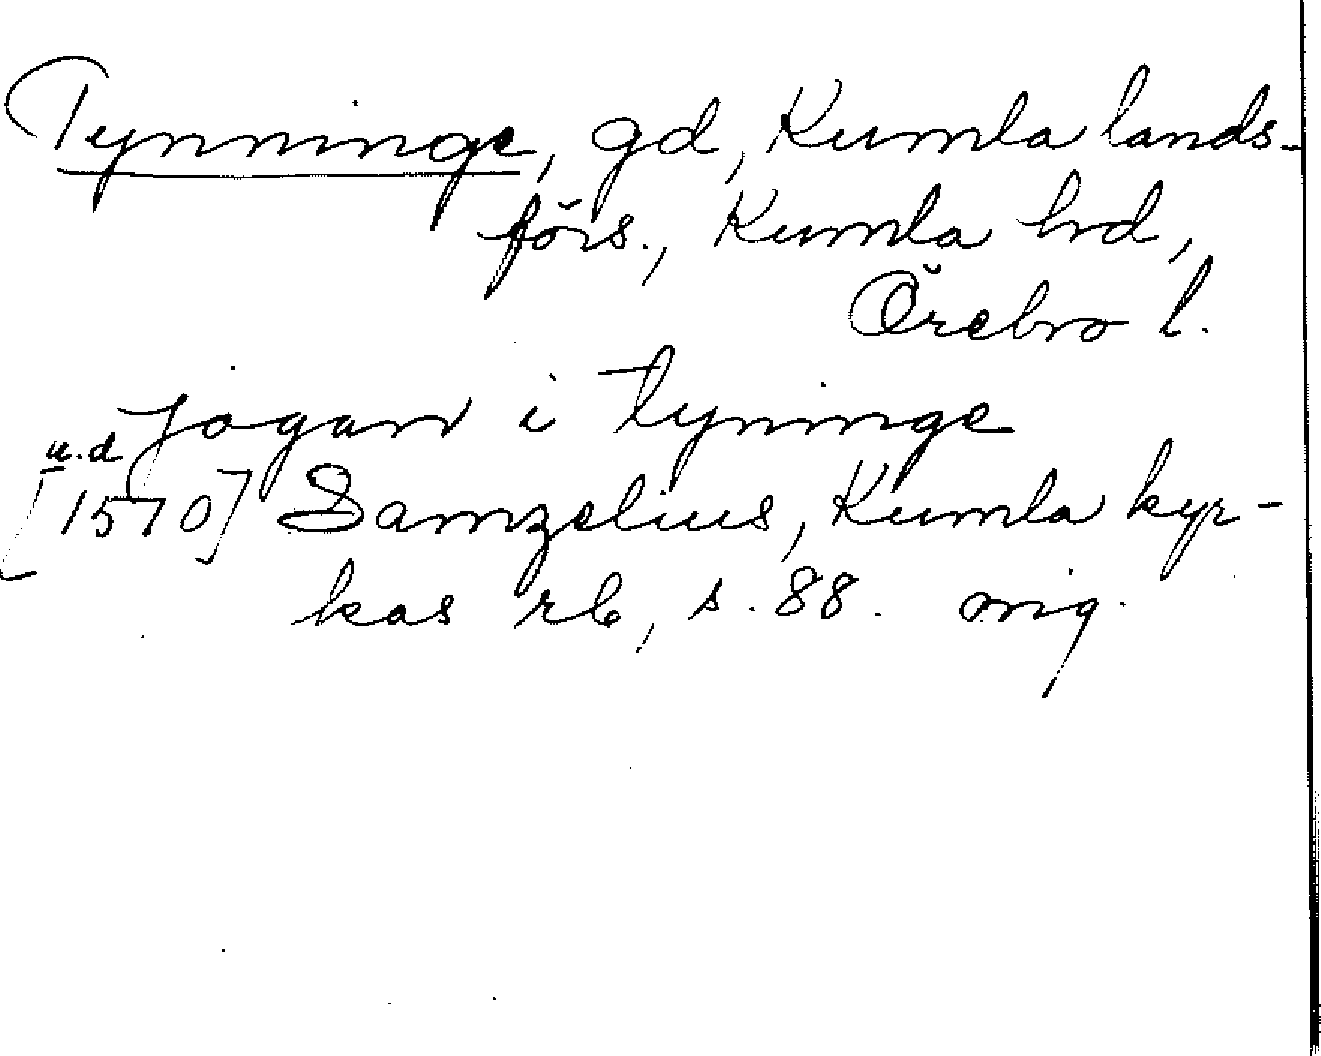 Tynninge, gd, Kumla lands-
förs., Kumla hd,
Örebro l.
jogan i tyninge
u.d
[1570] Samzelius, Kumla kyr-
kas rb, s. 88. mig.